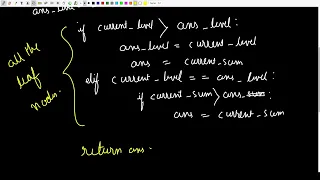 ans_level
if current_level > ans_level:
ans_level = current_level
ans = current_sum
elif current_level == ans_level:
if current_sum > ans:
ans = current_sum
all the
leaf
nodes.
return ans.